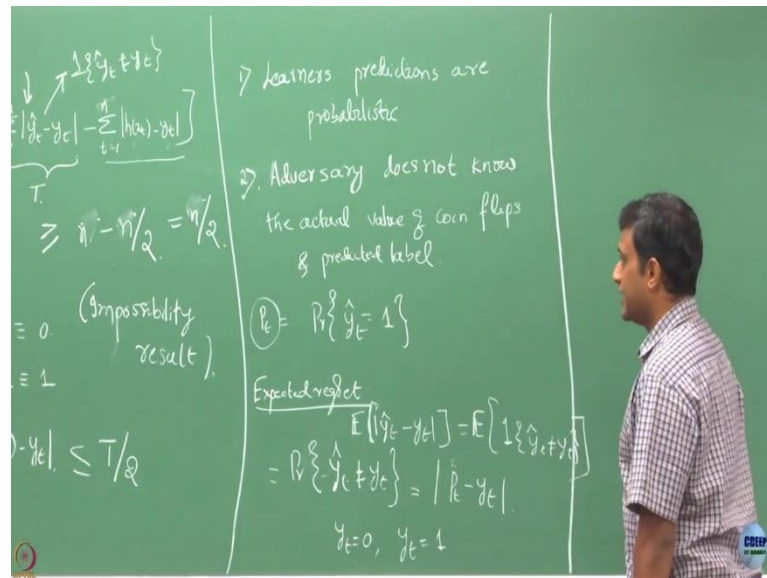 1{ŷt ≠ yt}
|ŷt - yt| - Σ |h(xt) - yt| ]
t=1
T.
≥ n - n/2 = n/2.
≡ 0
(Impossibility
result).
≡ 1
- yt| ≤ T/2
1) Learners predictions are
probabilistic
2) Adversary does not know
the actual value of coin flips
& predicted label.
Pt = Pr{ŷt = 1}
Expected regret
E[|ŷt - yt|] = E[1{ŷt ≠ yt}]
= Pr{ŷt ≠ yt} = |Pt - yt|.
yt=0, yt=1
CDEEP